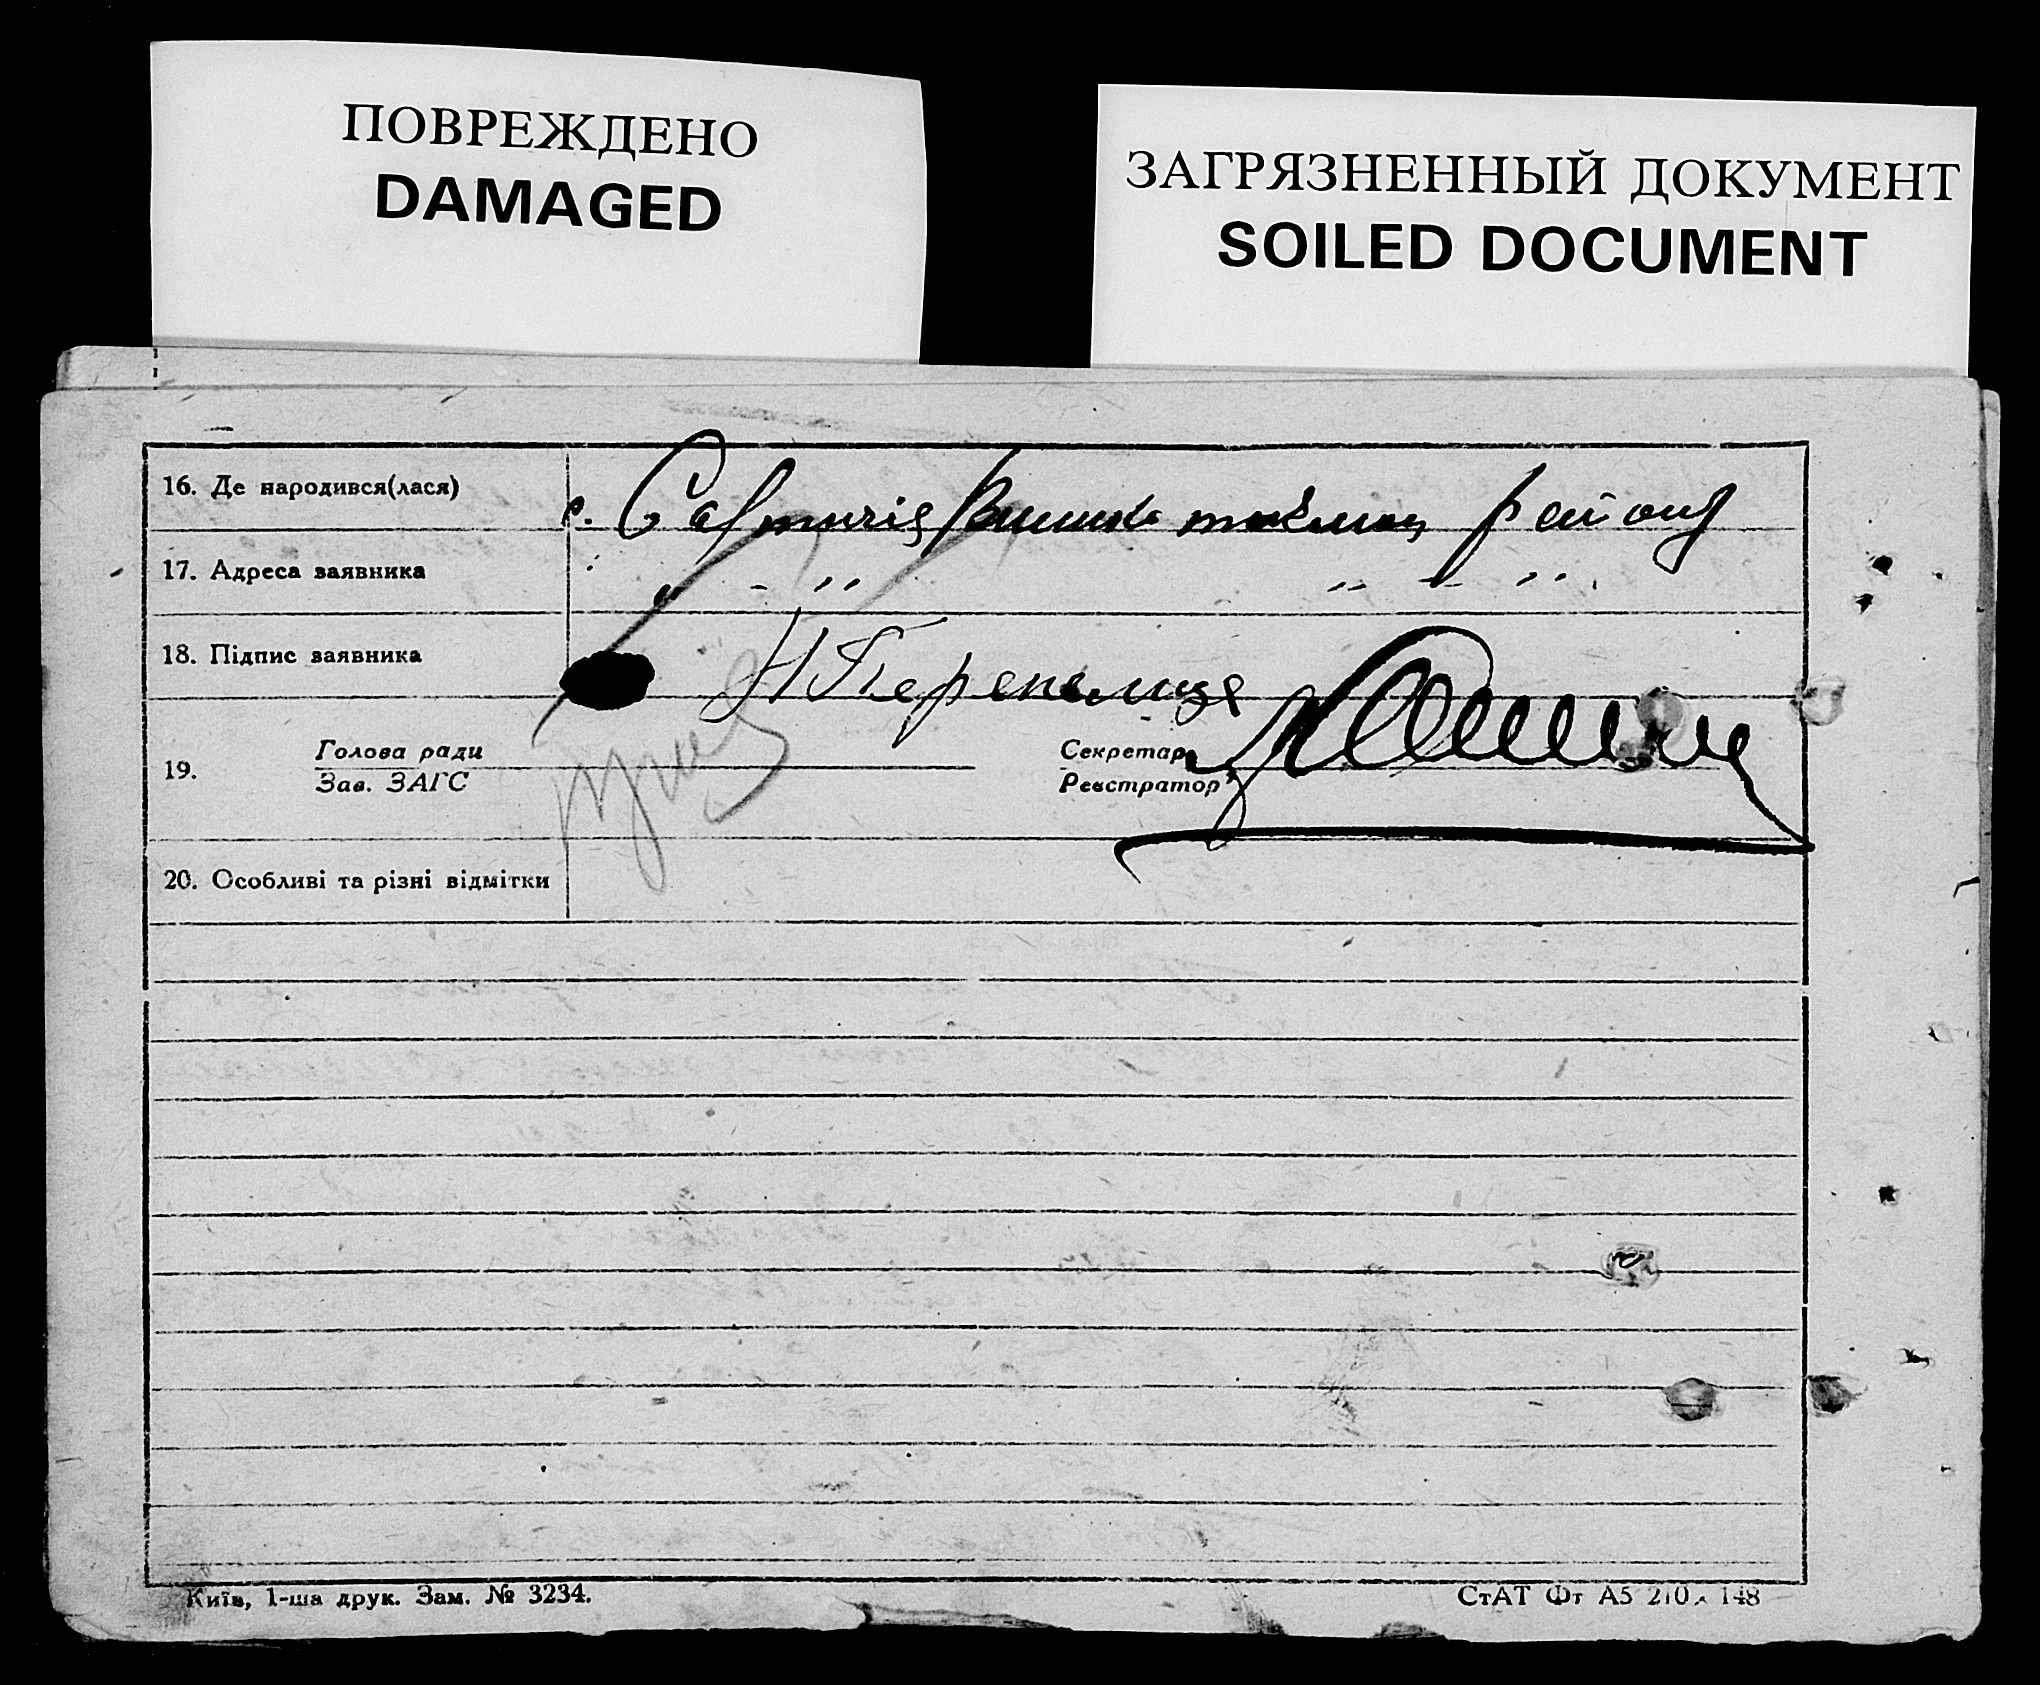 ПОВРЕЖДЕНО
DAMAGED
ЗАГРЯЗНЕННЫЙ ДОКУМЕНТ
SOILED DOCUMENT
16. Де народився(лася) с. району
17. Адреса заявника „ - „ „ - „
18. Підпис заявника Н Перепелиця
19. Голова ради
Зав. ЗАГС
Секретар
Реєстратор
20. Особливі та різні відмітки
Київ, 1-ша друк. Зам. № 3234.
СтАТ Фт А5 210 x 148